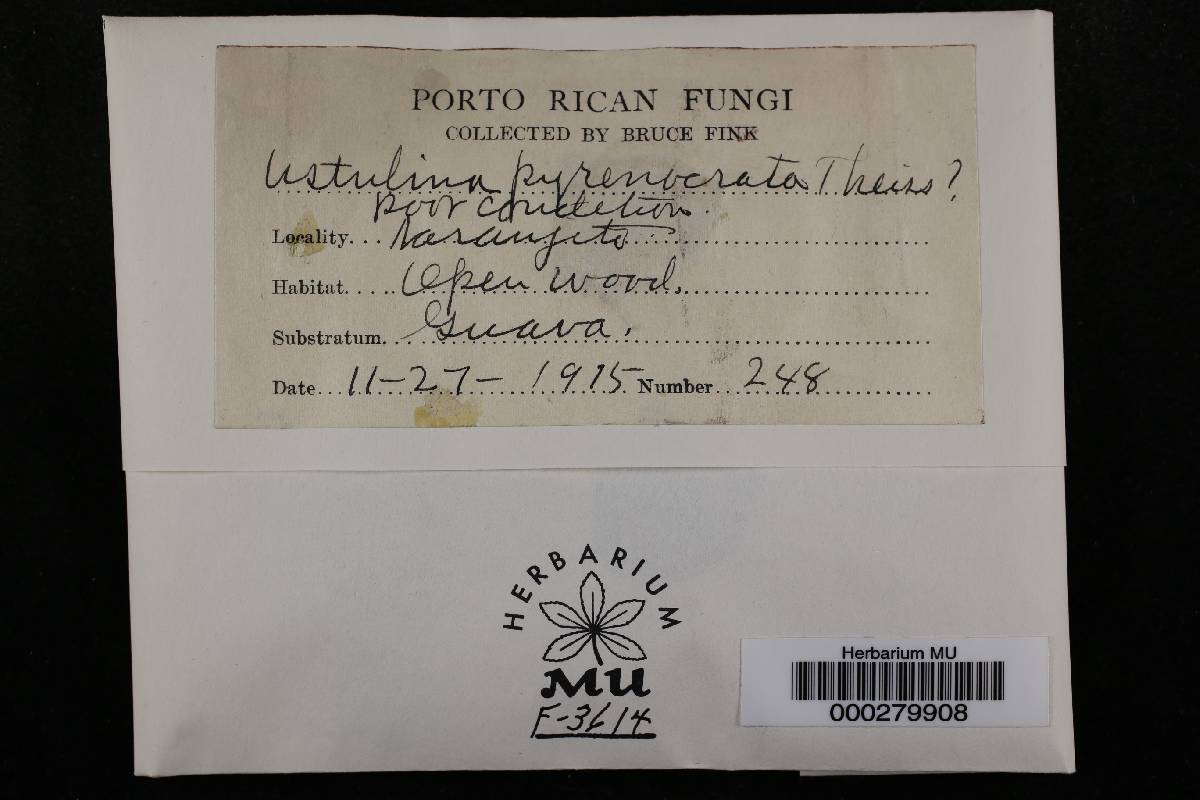 PORTO RICAN FUNGI
COLLECTED BY BRUCE FINK
Ustulina pyrenocrata Theiss?
poor condition.
Locality... Naranjito
Habitat.... Open wood.
Substratum... Guava.
Date... 11-27-1915 Number... 248
HERBARIUM
MU
F-3614
Herbarium MU
000279908